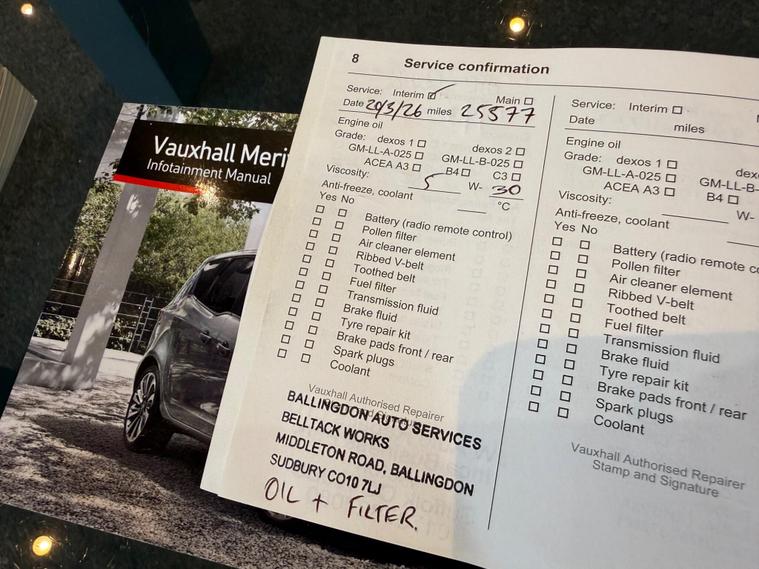 Vauxhall Meri
Infotainment Manual
8 Service confirmation
Service: Interim ☑ Main ☐
Date 20/3/26 miles 25577
Engine oil
Grade: dexos 1 ☐ dexos 2 ☐
GM-LL-A-025 ☐ GM-LL-B-025 ☐
ACEA A3 ☐ B4 ☐ C3 ☐
Viscosity: 5 W- 30
Anti-freeze, coolant °C
Yes No
☐ ☐ Battery (radio remote control)
☐ ☐ Pollen filter
☐ ☐ Air cleaner element
☐ ☐ Ribbed V-belt
☐ ☐ Toothed belt
☐ ☐ Fuel filter
☐ ☐ Transmission fluid
☐ ☐ Brake fluid
☐ ☐ Tyre repair kit
☐ ☐ Brake pads front / rear
☐ ☐ Spark plugs
☐ ☐ Coolant
Vauxhall Authorised Repairer
BALLINGDON AUTO SERVICES
BELLTACK WORKS
MIDDLETON ROAD, BALLINGDON
SUDBURY CO10 7LJ
OIL + FILTER.
Service: Interim ☐
Date miles
Engine oil
Grade: dexos 1 ☐ dex
GM-LL-A-025 ☐ GM-LL-B-
ACEA A3 ☐ B4 ☐
Viscosity: W-
Anti-freeze, coolant
Yes No
☐ ☐ Battery (radio remote co
☐ ☐ Pollen filter
☐ ☐ Air cleaner element
☐ ☐ Ribbed V-belt
☐ ☐ Toothed belt
☐ ☐ Fuel filter
☐ ☐ Transmission fluid
☐ ☐ Brake fluid
☐ ☐ Tyre repair kit
☐ ☐ Brake pads front / rear
☐ ☐ Spark plugs
☐ ☐ Coolant
Vauxhall Authorised Repairer
Stamp and Signature